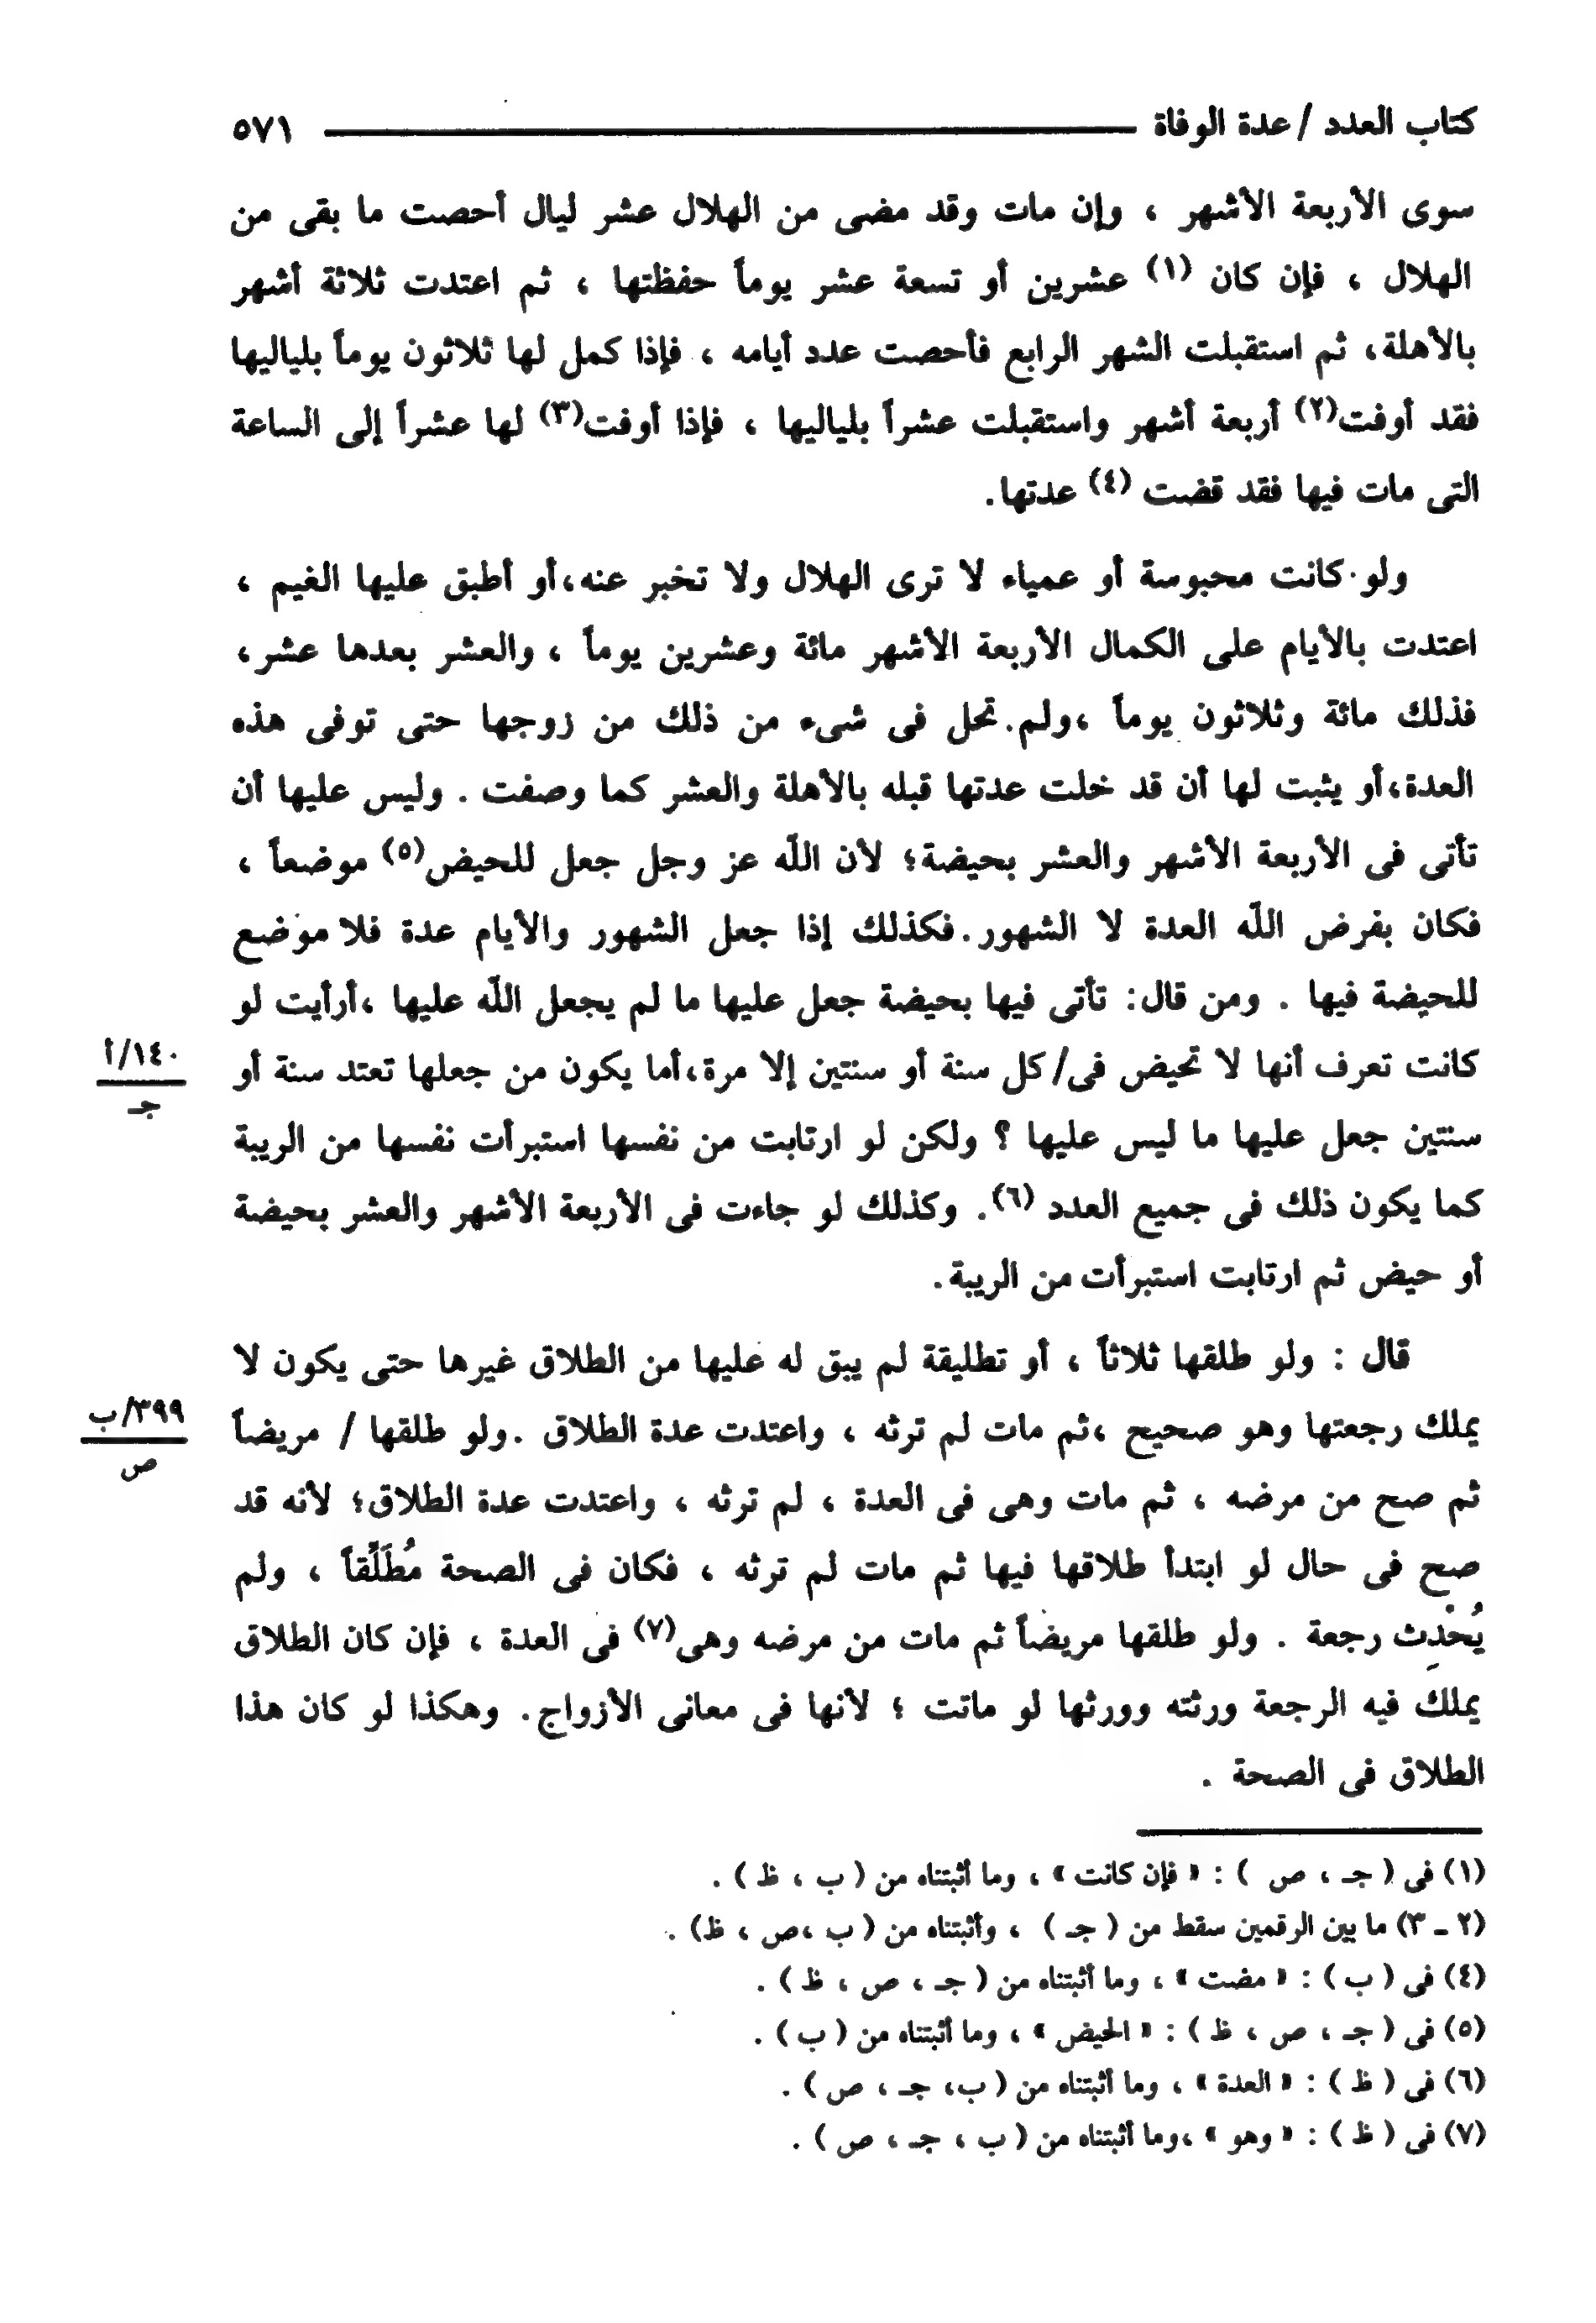 كتاب العدد / عدة الوفاة ٥٧١
سوى الأربعة الأشهر ، وإن مات وقد مضى من الهلال عشر ليال أحصت ما بقى من
الهلال ، فإن كان (١) عشرين أو تسعة عشر يوماً حفظتها ، ثم اعتدت ثلاثة أشهر
بالأهلة، ثم استقبلت الشهر الرابع فأحصت عدد أيامه ، فإذا كمل لها ثلاثون يوماً بلياليها
فقد أوفت(٢) أربعة أشهر واستقبلت عشراً بلياليها ، فإذا أوفت(٣) لها عشراً إلى الساعة
التى مات فيها فقد قضت (٤) عدتها.
ولو كانت محبوسة أو عمياء لا ترى الهلال ولا تخبر عنه،أو أطبق عليها الغيم ،
اعتدت بالأيام على الكمال الأربعة الأشهر مائة وعشرين يوماً ، والعشر بعدها عشر،
فذلك مائة وثلاثون يوماً ،ولم تحل فى شىء من ذلك من زوجها حتى توفى هذه
العدة،أو يثبت لها أن قد خلت عدتها قبله بالأهلة والعشر كما وصفت . وليس عليها أن
تأتى فى الأربعة الأشهر والعشر بحيضة؛ لأن اللّه عز وجل جعل للحيض(٥) موضعاً ،
فكان بفرض اللّه العدة لا الشهور.فكذلك إذا جعل الشهور والأيام عدة فلا موضع
للحيضة فيها . ومن قال: تأتى فيها بحيضة جعل عليها ما لم يجعل اللّه عليها ،أرأيت لو
كانت تعرف أنها لا تحيض فى/ كل سنة أو سنتين إلا مرة،أما يكون من جعلها تعتد سنة أو
١٤٠/أ
جـ
سنتين جعل عليها ما ليس عليها ؟ ولكن لو ارتابت من نفسها استبرأت نفسها من الريبة
كما يكون ذلك فى جميع العدد (٦). وكذلك لو جاءت فى الأربعة الأشهر والعشر بحيضة
أو حيض ثم ارتابت استبرأت من الريبة.
قال : ولو طلقها ثلاثاً ، أو تطليقة لم يبق له عليها من الطلاق غيرها حتى يكون لا
يملك رجعتها وهو صحيح ،ثم مات لم ترثه ، واعتدت عدة الطلاق .ولو طلقها / مريضاً
٣٩٩/ب
ص
ثم صح من مرضه ، ثم مات وهى فى العدة ، لم ترثه ، واعتدت عدة الطلاق؛ لأنه قد
صح فى حال لو ابتدأ طلاقها فيها ثم مات لم ترثه ، فكان فى الصحة مُطَلِّقاً ، ولم
يُحْدِث رجعة . ولو طلقها مريضاً ثم مات من مرضه وهى(٧) فى العدة ، فإن كان الطلاق
يملك فيه الرجعة ورثته وورثها لو ماتت ؛ لأنها فى معانى الأزواج. وهكذا لو كان هذا
الطلاق فى الصحة .
(١) فى ( جـ ، ص ) : « فإن كانت » ، وما أثبتناه من ( ب ، ظ ) .
(٢ ـ ٣) ما بين الرقمين سقط من ( جـ ) ، وأثبتناه من ( ب ،ص ، ظ) .
(٤) فى ( ب ) : « مضت » ، وما أثبتناه من ( جـ ، ص ، ظ ) .
(٥) فى ( جـ ، ص ، ظ ) : « الحيض » ، وما أثبتناه من ( ب ) .
(٦) فى ( ظ ) : « العدة » ، وما أثبتناه من ( ب، جـ ، ص ) .
(٧) فى ( ظ ) : « وهو » ،وما أثبتناه من ( ب ، جـ ، ص ) .